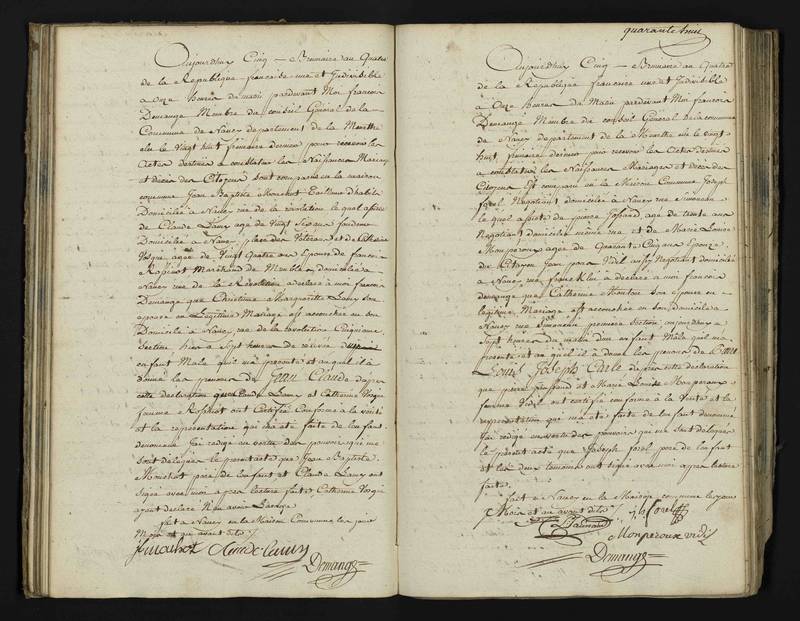 Aujourdhuy Cinq — Brumaire an Quatre
de la République francoise une et Indivisible
a Onze heures du matin pardevant Moi francois
Demange Membre du Conseil Général de la
Commune de Nancy departement de la Meurthe
elu le Vingt huit frimaire dernier pour recevoir les
Actes destinés a constater les Naissances Mariages
et décès des Citoyens sont comparus en la maison
commune Jean Baptiste Mouchot
Domicilié a Nancy rue de la révolution lequel assisté
de Claude Lamy age de Vingt
Domicilié a Nancy place et de Catherine
Vosgue agée de Vingt Quatre ans Epouse de francois
Marchand de Meubles domiciliée a
Nancy rue de la Révolution a déclaré a moi francois
Demange que Christine Margueritte Lamy son
épouse en Légitime Mariage est accouchée en son
Domicile a Nancy rue de la révolution Cinquieme
Section hier a Sept heures de
enfant Male quil ma présenté et auquel il à
donné les prénoms de Jean Claude dapres
cette declaration que Claude Lamy et Catherine Vosgue
femme ont Certifié Conforme a la vérité
et la représentation qui ma été faite de lenfant
denommé Jai rédigé en vertu des pouvoirs qui me
sont délégués le présent acte que Jean Baptiste
Mouchot père de lenfant et Claude Lamy ont
signé avec moi apres lecture faite Catherine Vosgue
ayant declaré Ne savoir
fait a Nancy en la Maison Commune les jour
Mois et an avant dits
Demange
quarante huit
Aujourdhuy Cinq — Brumaire an Quatre
de la République francoise une et Indivisible
a Onze heures du Matin pardevant Moi francois
Demange Membre du conseil Général de la commune
de Nancy departement de la Meurthe elu le vingt
huit frimaire dernier pour recevoir les Actes destinés
a constater les Naissances Mariages et décès des
Citoyens Est comparu en la Maison Commune Joseph
Négotiant domicilié a Nancy rue
lequel assisté de pierre agé de trente ans
Négotiant domicilié même rue et de Marie Louise
Monperoux agée de Quarante Cinq ans Epouse
du Citoyen Jean Négotiant domicilié
a Nancy rue a déclaré a moi francois
demange que Catherine son épouse en
légitime Mariage est accouchée en son domicile a
Nancy rue premiere Section aujourdhuy a
Sept heures du matin dun enfant Male quil ma
présenté et auquel il à donné les prénoms de
Louis Joseph dapres cette declaration
que pierre et Marie Louise Monperoux
femme ont certifié conforme à la Vérité et la
représentation qui ma été faite de lenfant denommé
Jai rédigé en vertu des pouvoirs qui me sont délégués
le présent acte que Joseph père de lenfant
et les deux temoins ont signé avec moi apres lecture
faite.
fait a Nancy en la Maison commune les jour
Mois et an avant dits
Monperoux
Demange